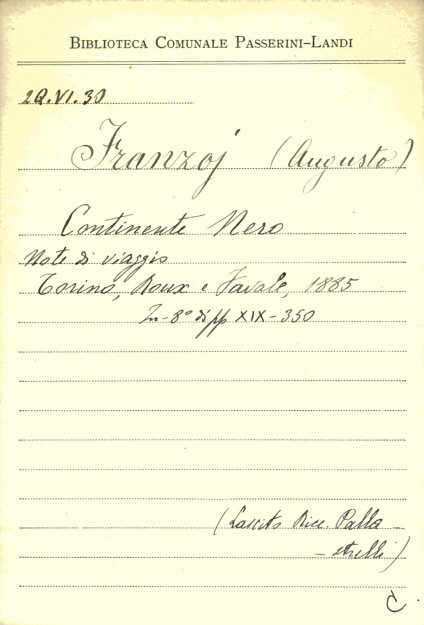 BIBLIOTECA COMUNALE PASSERINI-LANDI
2Q.VI.30
Franzoj (Augusto)
Continente Nero
Note di viaggio
Torino, Roux e Favale, 1885
In-8° di pp XIX-350
(Lascito Ricc. Palla-
-strelli)
C